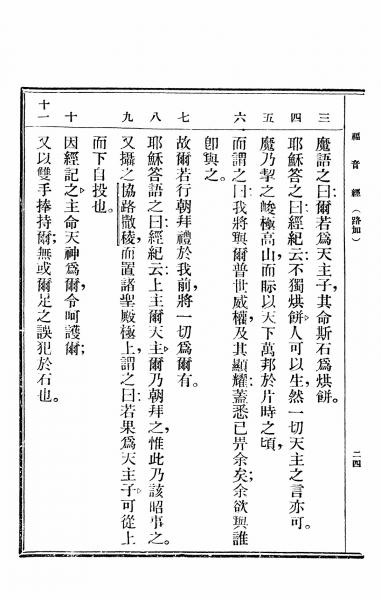 福音經(路加)
二四
三 魔語之曰:爾若爲天主子,其命斯石爲烘餅。
四 耶穌答之曰:經紀云:不獨烘餅,人可以生,然一切天主之言亦可。
五 魔乃挈之峻極高山,而眎以天下萬邦於片時之頃,
六 而謂之曰:我將與爾普世威權,及其顯耀,蓋悉已畀余矣;余欲與誰
卽與之。
七 故爾若行朝拜禮於我前,將一切爲爾有。
八 耶穌答語之曰:經紀云:上主爾天主,爾乃朝拜之,惟此乃該昭事之。
九 又攝之協路撒稜,而置諸聖殿極上,謂之曰:若果爲天主子,可從上
而下自投也。
十 因經記之:主命天神爲爾,令呵護爾;
十一 又以雙手捧持爾;無或爾足之誤犯於石也。